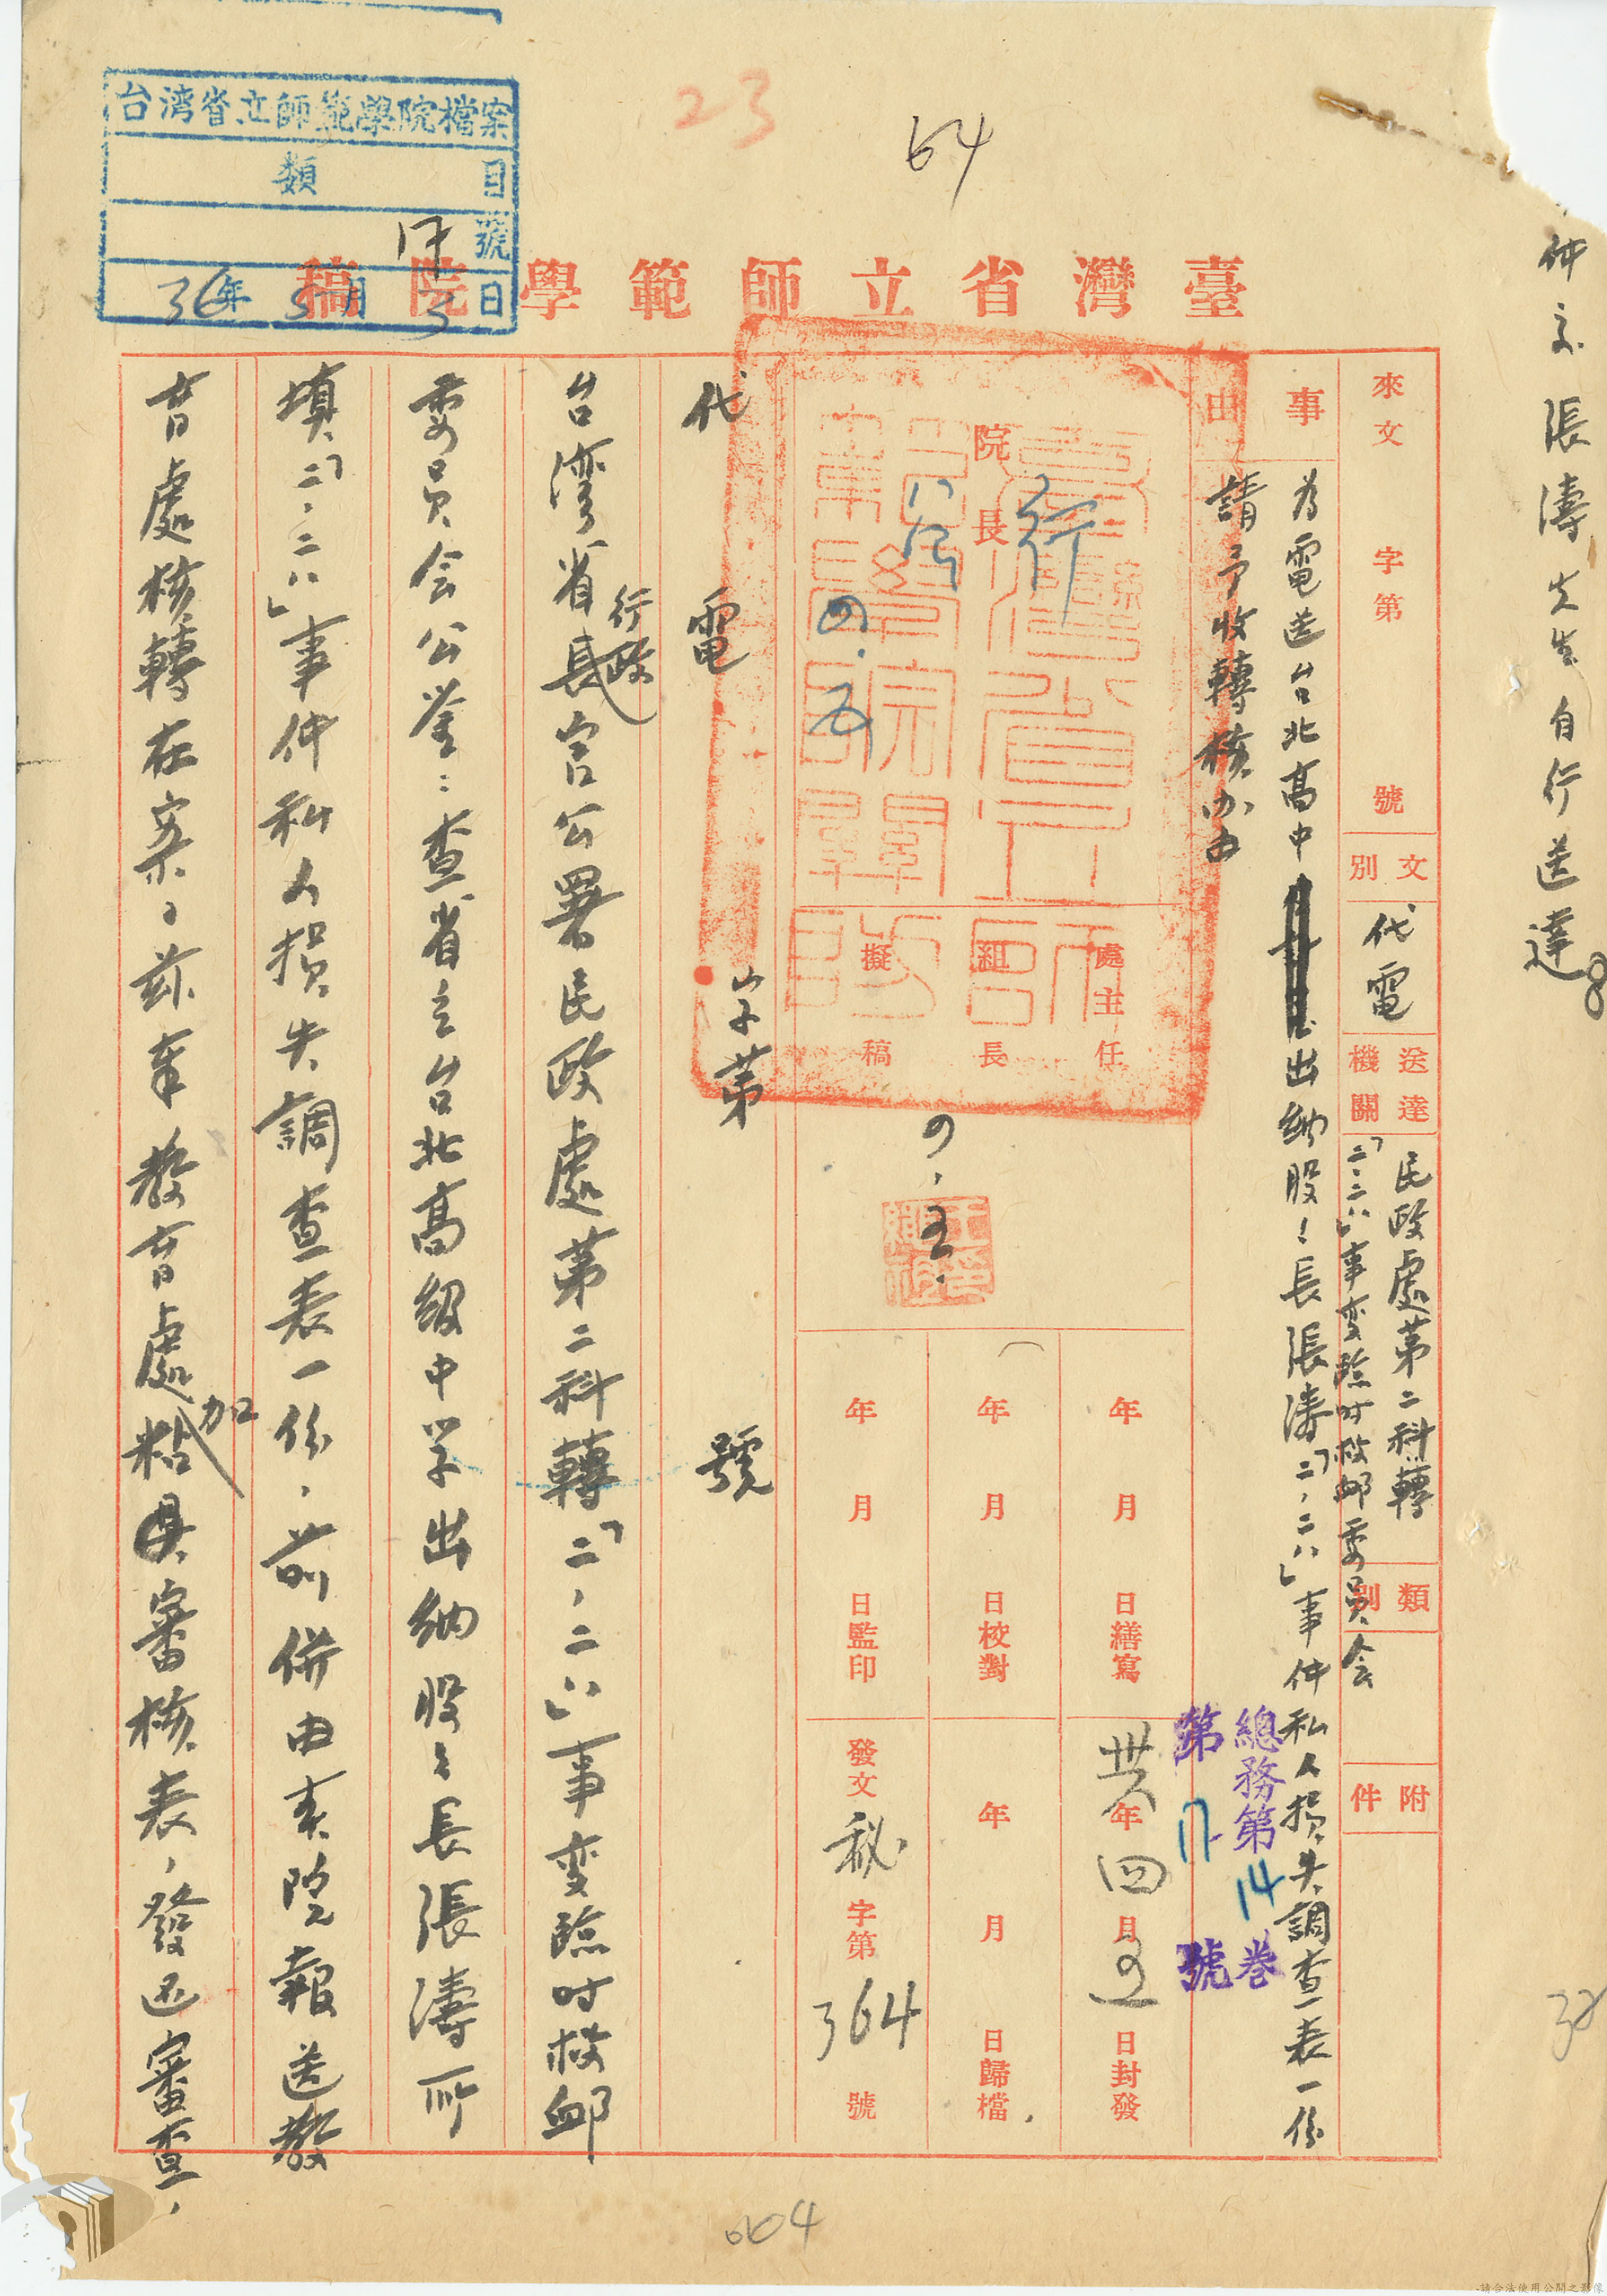 台湾省立師範學院檔案
類 目
號
36年5月3日
23
64
臺灣省立師範學院稿
件交張濤先生自行送達
來文 字第 號
文別 代電
送達機關 民政處第二科轉
「二、二八」事变臨时救邺委員会
類別
附件
事由
为電送台北高中出納股長張濤「二、二八」事件私人損失調查表一份
請予收轉核办由
院長
行
四.五
處主任
組長
擬稿
四.五.
年 月 日繕寫
年 月 日校對
年 月 日監印
卅六年四月五日封發
年 月 日歸檔
發文秘字第364號
總務第14卷
第17號
代電 字第 號
台湾省行政長官公署民政處第二科轉「二、二八」事变臨时救邺
委員会公鉴：查省立台北高級中学出納股股長張濤所
填「二、二八」事件私人損失調查表一份，前併由本院報送教
育處核轉在案，茲奉教育處粘加具審核表，發还審查，
32
004
請合法使用公開之影像